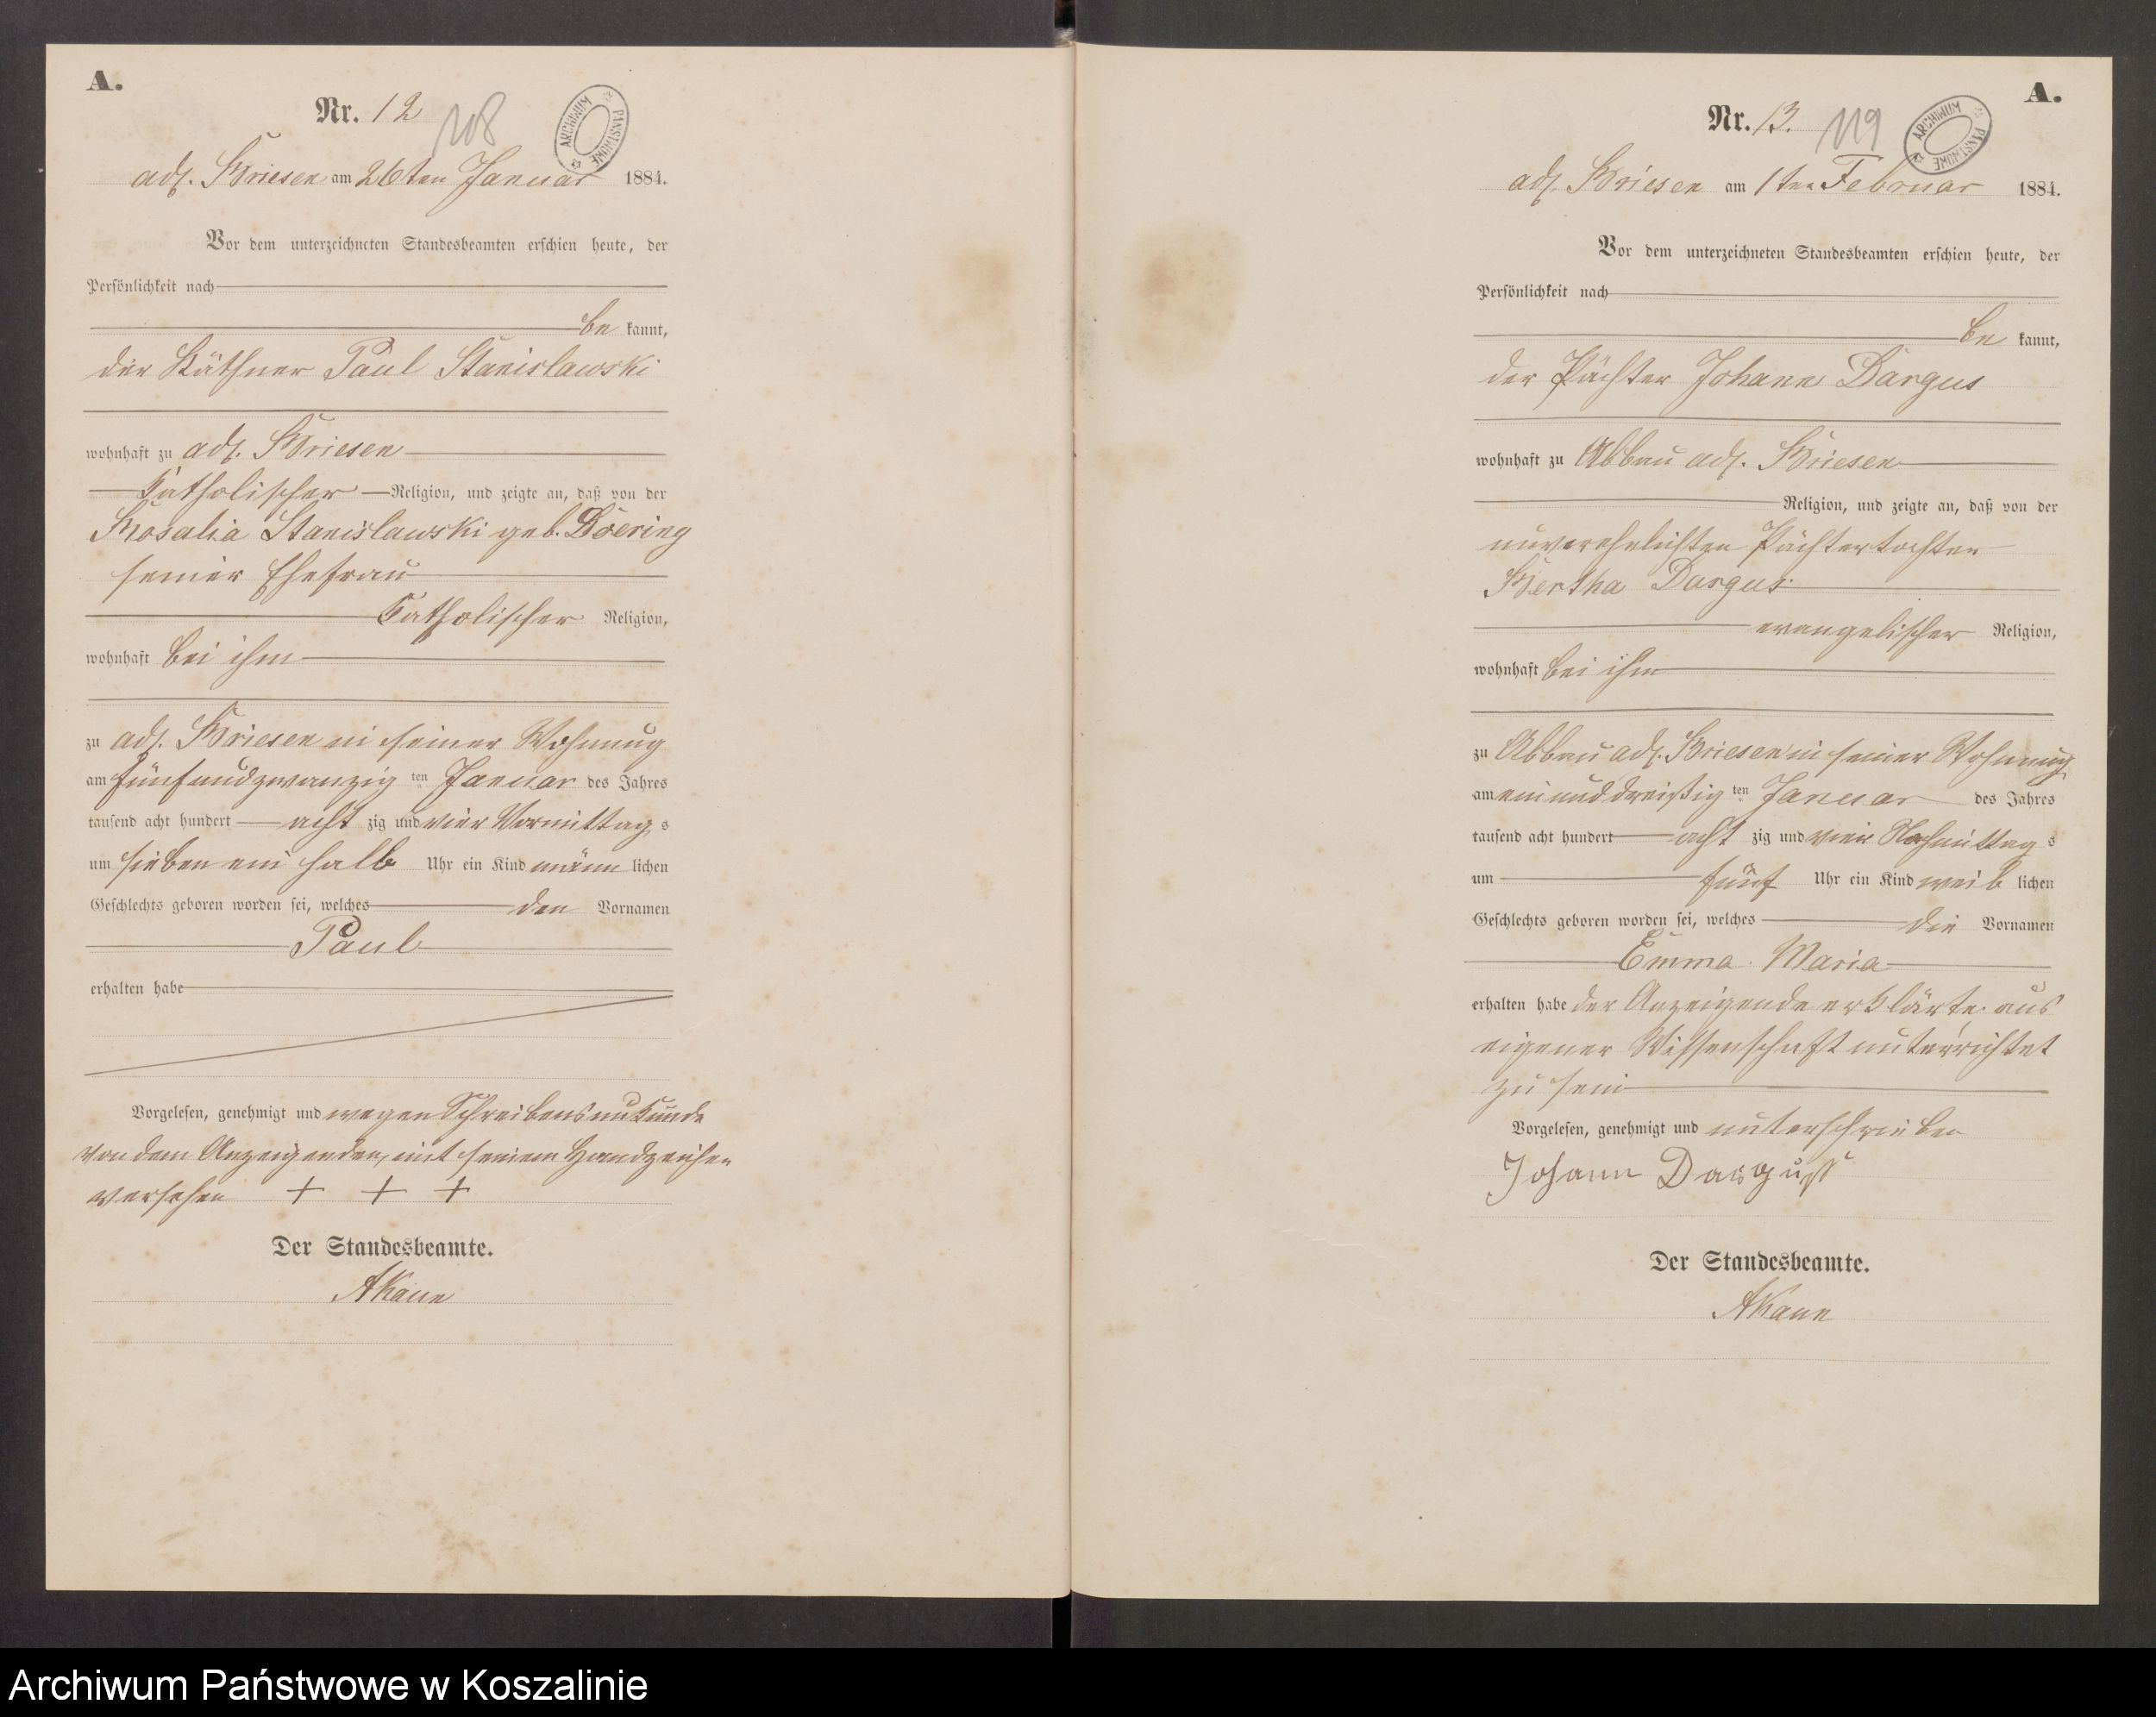 A.
Nr. 12
108
ARCHIWUM PAŃSTWOWE
adl. Briesen am 26ten Januar 1884.
Vor dem unterzeichneten Standesbeamten erschien heute, der
Persönlichkeit nach
be kannt,
der Käthner Paul Stanislawski
wohnhaft zu adl. Briesen
katholischer Religion, und zeigte an, daß von der
Rosalia Stanislawski geb. Doering
seiner Ehefrau
katholischer Religion,
wohnhaft bei ihm
zu adl. Briesen in seiner Wohnung
am fünfundzwanzig ten Januar des Jahres
tausend acht hundert acht zig und vier Vormittag s
um sieben ein halb Uhr ein Kind männ lichen
Geschlechts geboren worden sei, welches den Vornamen
Paul
erhalten habe
Vorgelesen, genehmigt und wegen Schreibensunkunde
von dem Anzeigenden, mit seinem Handzeichen
versehen + + +
Der Standesbeamte.
A.
Nr. 13.
119
ARCHIWUM PAŃSTWOWE
adl. Briesen am 1ten Februar 1884.
Vor dem unterzeichneten Standesbeamten erschien heute, der
Persönlichkeit nach
be kannt,
der Pächter Johann Dargus
wohnhaft zu Abbau adl. Briesen
Religion, und zeigte an, daß von der
unverehelichten Pächtertochter
Bertha Dargus
evangelischer Religion,
wohnhaft bei ihm
zu Abbau adl. Briesen in seiner Wohnung
am einunddreißig ten Januar des Jahres
tausend acht hundert acht zig und vier Nachmittag s
um fünf Uhr ein Kind weib lichen
Geschlechts geboren worden sei, welches die Vornamen
Emma Maria
erhalten habe der Anzeigende erklärte aus
eigener Wissenschaft unterrichtet
zu sein
Vorgelesen, genehmigt und unterschrieben
Johann Dargusß
Der Standesbeamte.
Archiwum Państwowe w Koszalinie